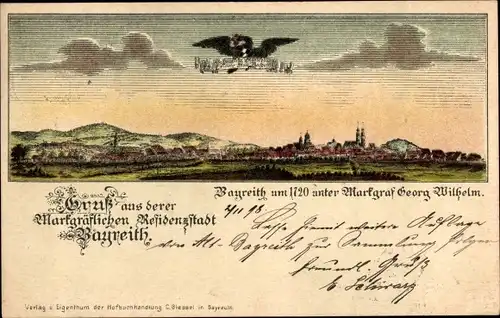 Bayreith um 1720 unter Markgraf Georg Wilhelm.
Gruß aus derer
Markgräflichen Residenzstadt
Bayreith.
Lasse hiemit weitere Auflage
von Alt-Bayreith zur Sammlung folgen
freundl. Gruß
Verlag u. Eigenthum der Hofbuchhandlung C. Giessel in Bayreuth.